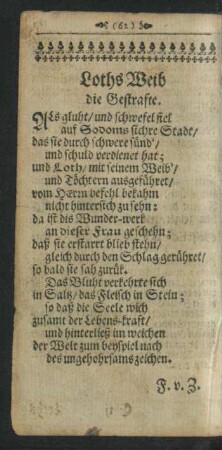 (62)
Loths Weib
die Gestrafte.
ALs gluht/ und schwefel fiel
auf Sodoms sichre Stadt/
das sie durch schwere sünd'/
und schuld verdienet hat;
und Loth/ mit seinem Weib'/
und Töchtern ausgeführet/
vom HErrn befehl bekahm
nicht hintersich zu sehn:
da ist dis Wunder-werk
an dieser Frau geschehn;
daß sie erstarrt blieb stehn/
gleich durch den Schlag gerühret/
so bald sie sah zurük.
Das Bluht verkehrte sich
in Saltz/ das Fleisch in Stein;
so daß die Seele wich
zusamt der Lebens-kraft/
und hinterließ im weichen
der Welt zum beyspiel nach
des ungehohrsams zeichen.
F. v. Z.